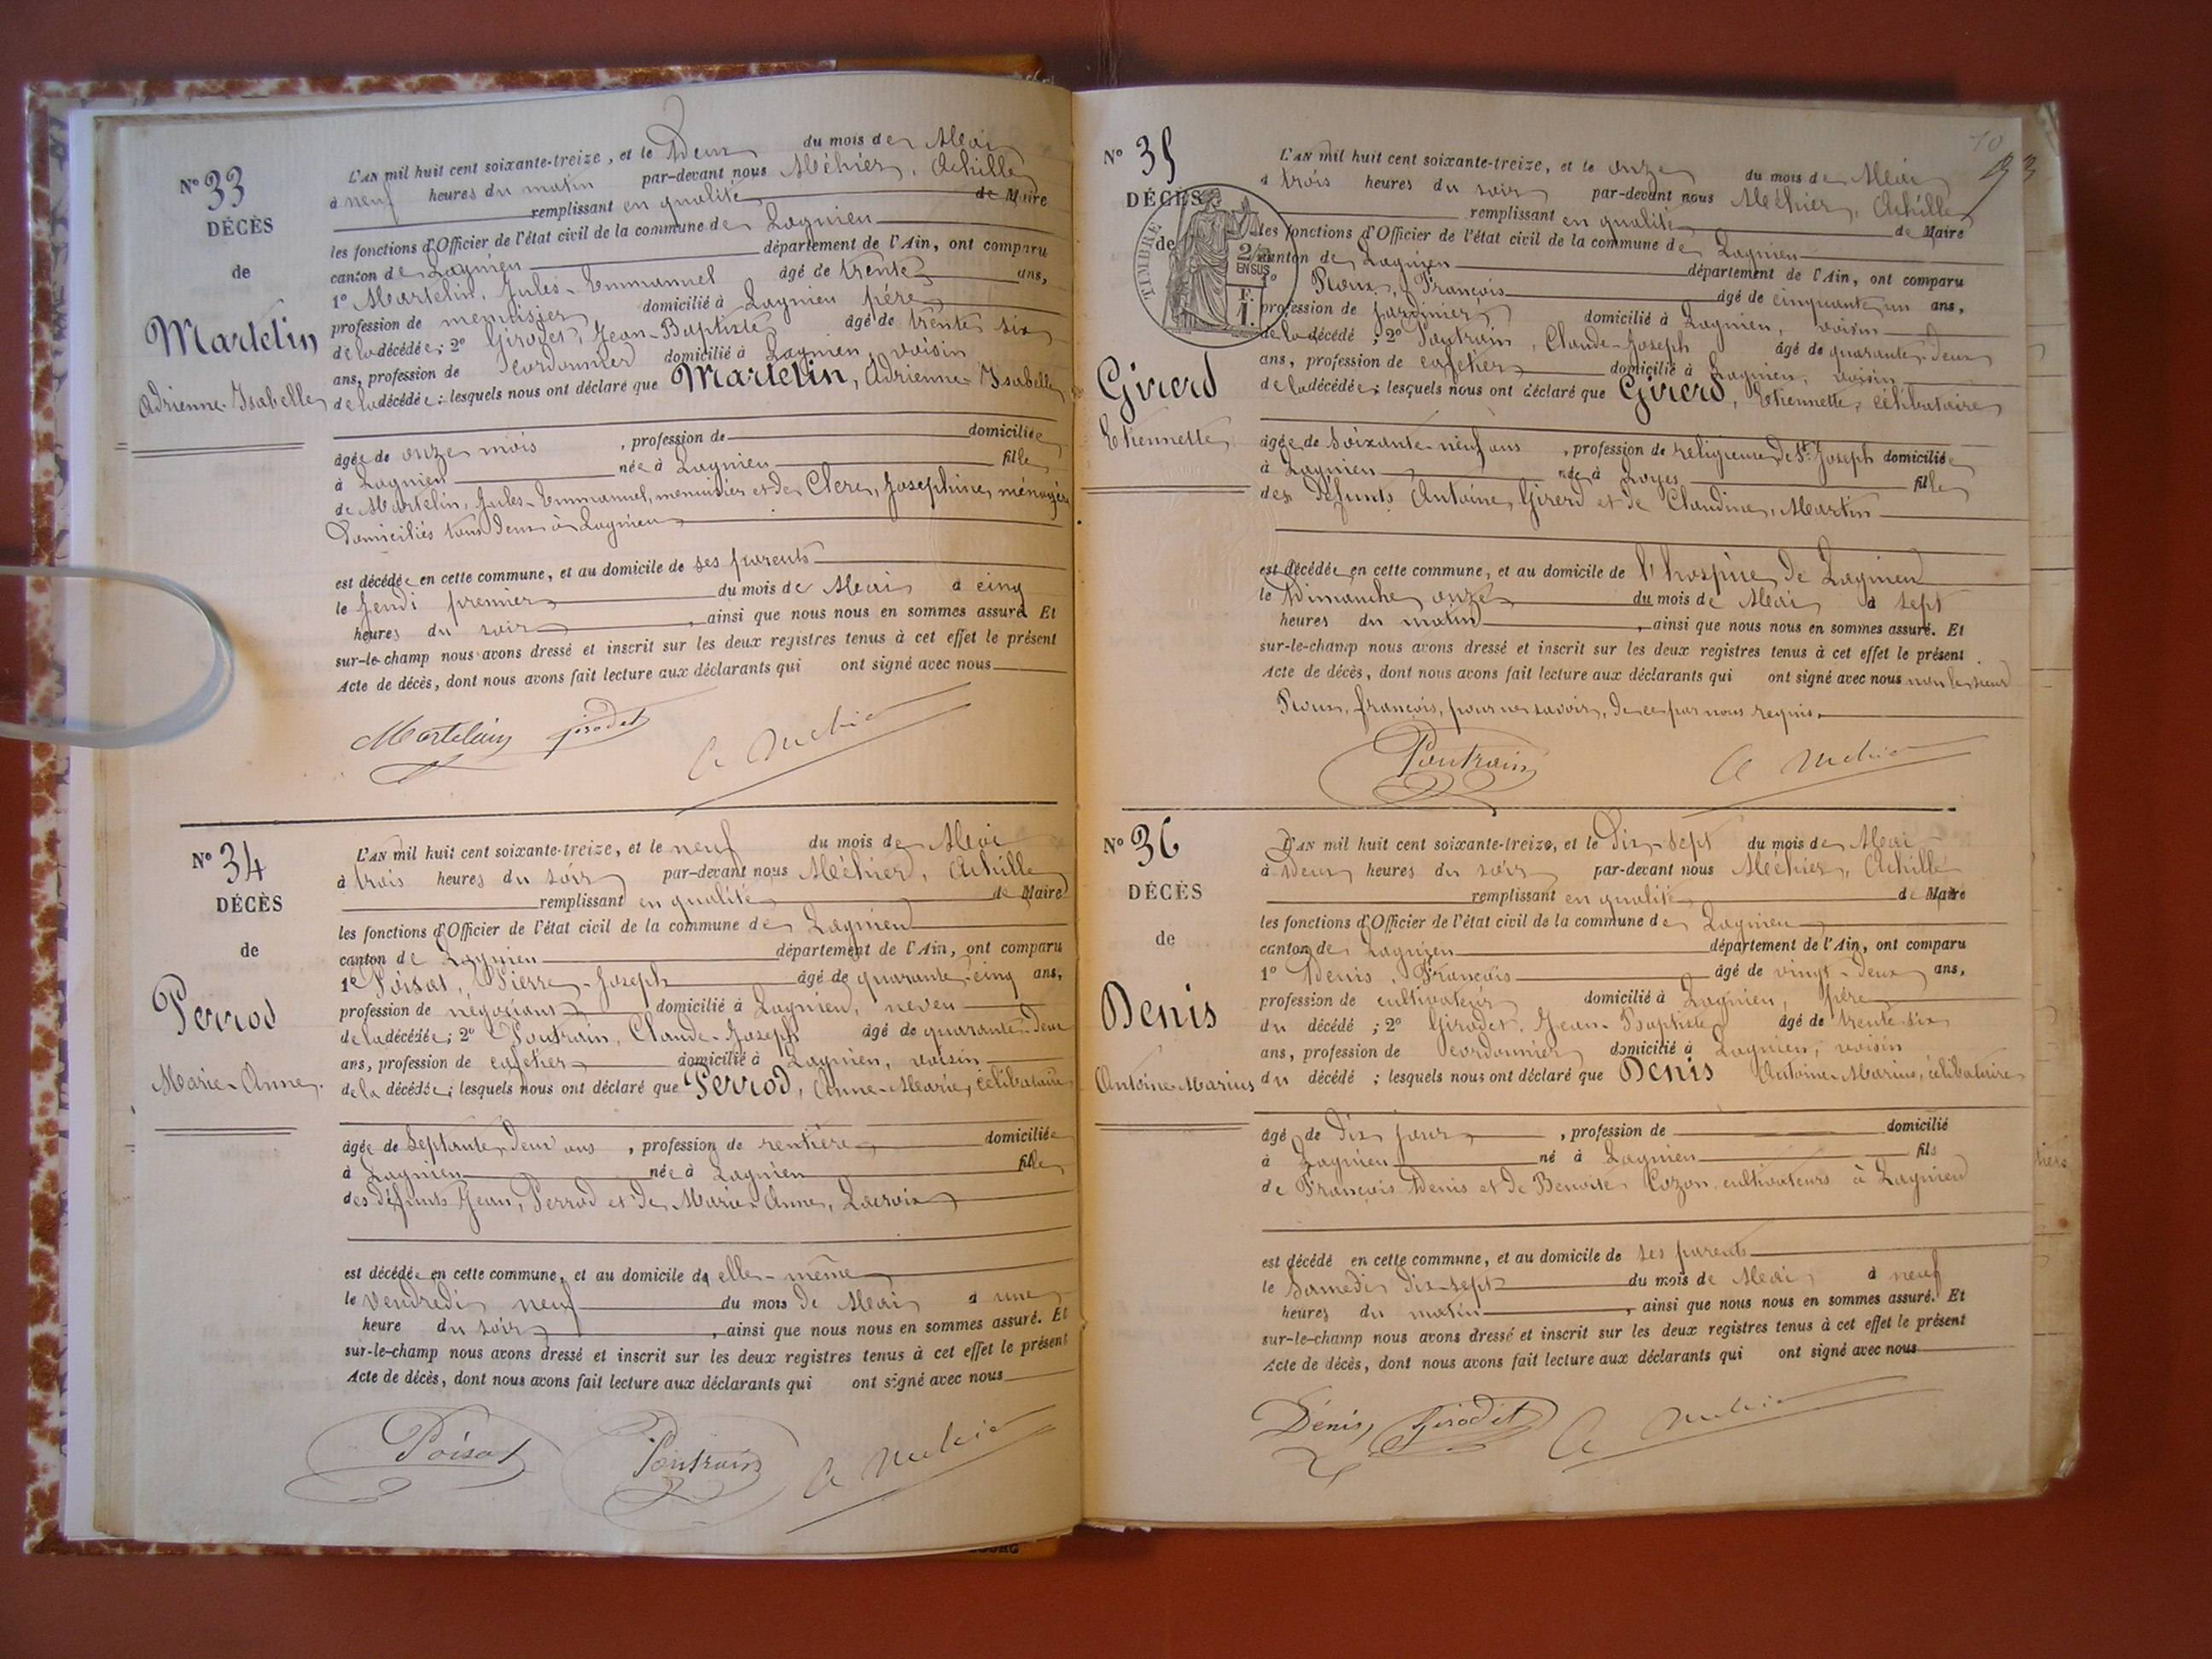 N° 33
DÉCÈS
de
Martelin
Adrienne Isabelle
L'AN mil huit cent soixante-treize, et le Deux du mois de Mai
à neuf heures du matin par-devant nous Méhier, Achille
remplissant en qualité de Maire
les fonctions d'Officier de l'état civil de la commune de Lagnieu
canton de Lagnieu département de l'Ain, ont comparu
1° Martelin, Jules-Emmanuel âgé de trente ans,
profession de menuisier domicilié à Lagnieu père
de la décédée; 2° Girodet, Jean-Baptiste âgé de trente six
ans, profession de Cordonnier domicilié à Lagnieu, voisin
de la décédée: lesquels nous ont déclaré que Martelin, Adrienne Isabelle
âgée de onze mois, profession de domiciliée
à Lagnieu née à Lagnieu fille
de Martelin, Jules-Emmanuel, menuisier et de Clerc, Josephine, ménagère
Domiciliés tous deux à Lagnieu
est décédée en cette commune, et au domicile de ses parents
le Jeudi premier du mois de Mai à cinq
heures du soir, ainsi que nous nous en sommes assuré. Et
sur-le-champ nous avons dressé et inscrit sur les deux registres tenus à cet effet le présent
Acte de décès, dont nous avons fait lecture aux déclarants qui ont signé avec nous
Martelin Girodet A Mehier
N° 34
DÉCÈS
de
Perrod
Marie-Anne.
L'AN mil huit cent soixante-treize, et le neuf du mois de Mai
à trois heures du soir par-devant nous Méhier, Achille
remplissant en qualité de Maire
les fonctions d'Officier de l'état civil de la commune de Lagnieu
canton de Lagnieu département de l'Ain, ont comparu
1° Poisat, Pierre-Joseph âgé de quarante-cinq ans,
profession de négociant domicilié à Lagnieu, neveu
de la décédée; 2° Poutrain, Claude-Joseph âgé de quarante-deux
ans, profession de cafetier domicilié à Lagnieu, voisin
de la décédée; lesquels nous ont déclaré que Perrod, Anne-Marie, célibataire
âgée de Septante Deux ans, profession de rentière domiciliée
à Lagnieu née à Lagnieu fille
des défunts Jean, Perrod et de Marie-Anne, Lacroix
est décédée en cette commune, et au domicile de elle-même
le Vendredi neuf du mois de Mai à une
heure du soir, ainsi que nous nous en sommes assuré. Et
sur-le-champ nous avons dressé et inscrit sur les deux registres tenus à cet effet le présent
Acte de décès, dont nous avons fait lecture aux déclarants qui ont signé avec nous
Poisat Poutrain A Mehier
10
N° 35
DÉCÈS
de
TIMBRE
2/10
EN SUS
F.
1.
Girerd
Etiennette
L'AN mil huit cent soixante-treize, et le onze du mois de Mai
à trois heures du soir par-devant nous Méhier, Achille
remplissant en qualité de Maire
les fonctions d'Officier de l'état civil de la commune de Lagnieu
canton de Lagnieu département de l'Ain, ont comparu
1° Roux, François âgé de cinquante un ans,
profession de Jardinier domicilié à Lagnieu, voisin
de la décédé; 2° Poutrain, Claude-Joseph âgé de quarante-deux
ans, profession de cafetier domicilié à Lagnieu, voisin
de la décédée; lesquels nous ont déclaré que Girerd, Etiennette, célibataire
âgée de Soixante-neuf ans, profession de religieuse de St Joseph domiciliée
à Lagnieu née à Loyes fille
des défunts Antoine, Girerd et de Claudine, Martin
est décédée en cette commune, et au domicile de l'hospice de Lagnieu
le Dimanche onze du mois de Mai à sept
heures du matin, ainsi que nous nous en sommes assuré. Et
sur-le-champ nous avons dressé et inscrit sur les deux registres tenus à cet effet le présent
Acte de décès, dont nous avons fait lecture aux déclarants qui ont signé avec nous non le sieur
Roux, françois, pour ne savoir, de ce par nous requis.
Poutrain A Mehier
N° 36
DÉCÈS
de
Denis
Antoine-Marius
L'AN mil huit cent soixante-treize, et le Dix-sept du mois de Mai
à Deux heures du soir par-devant nous Méhier, Achille
remplissant en qualité de Maire
les fonctions d'Officier de l'état civil de la commune de Lagnieu
canton de Lagnieu département de l'Ain, ont comparu
1° Denis, François âgé de vingt-deux ans,
profession de cultivateur domicilié à Lagnieu, père
du décédé; 2° Girodet, Jean-Baptiste âgé de trente six
ans, profession de Cordonnier domicilié à Lagnieu, voisin
du décédé; lesquels nous ont déclaré que Denis Antoine-Marius, célibataire
âgé de dix jours, profession de domicilié
à Lagnieu né à Lagnieu fils
de François Denis et de Benoite Cozon cultivateurs à Lagnieu
est décédé en cette commune, et au domicile de ses parents
le Samedi dix-sept du mois de Mai à neuf
heures du matin, ainsi que nous nous en sommes assuré. Et
sur-le-champ nous avons dressé et inscrit sur les deux registres tenus à cet effet le présent
Acte de décès, dont nous avons fait lecture aux déclarants qui ont signé avec nous
Dénis, Girodet A Mehier